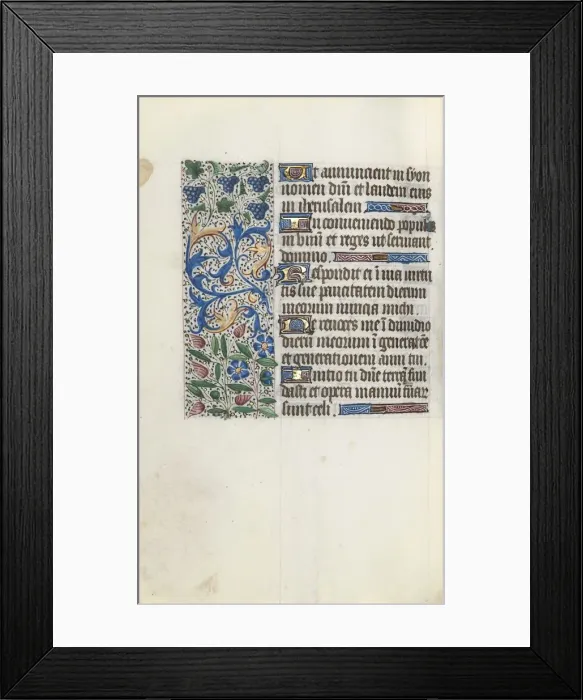 Ut annuncient in syon
nomen dñi et laudem eius
in iherusalem
In conveniendo populos
in vnũ et reges ut seruiant
domino.
Respondit ei ĩ via uirtu
tis sue paucitatem dierum
meorum nuncia michi.
Ne reuoces me ĩ dimidio
dierũ meorum ĩ generacõe
et generationem anni tui.
Initio tu dñe terrã fun
dasti et opera manuũ tuar
sunt celi.